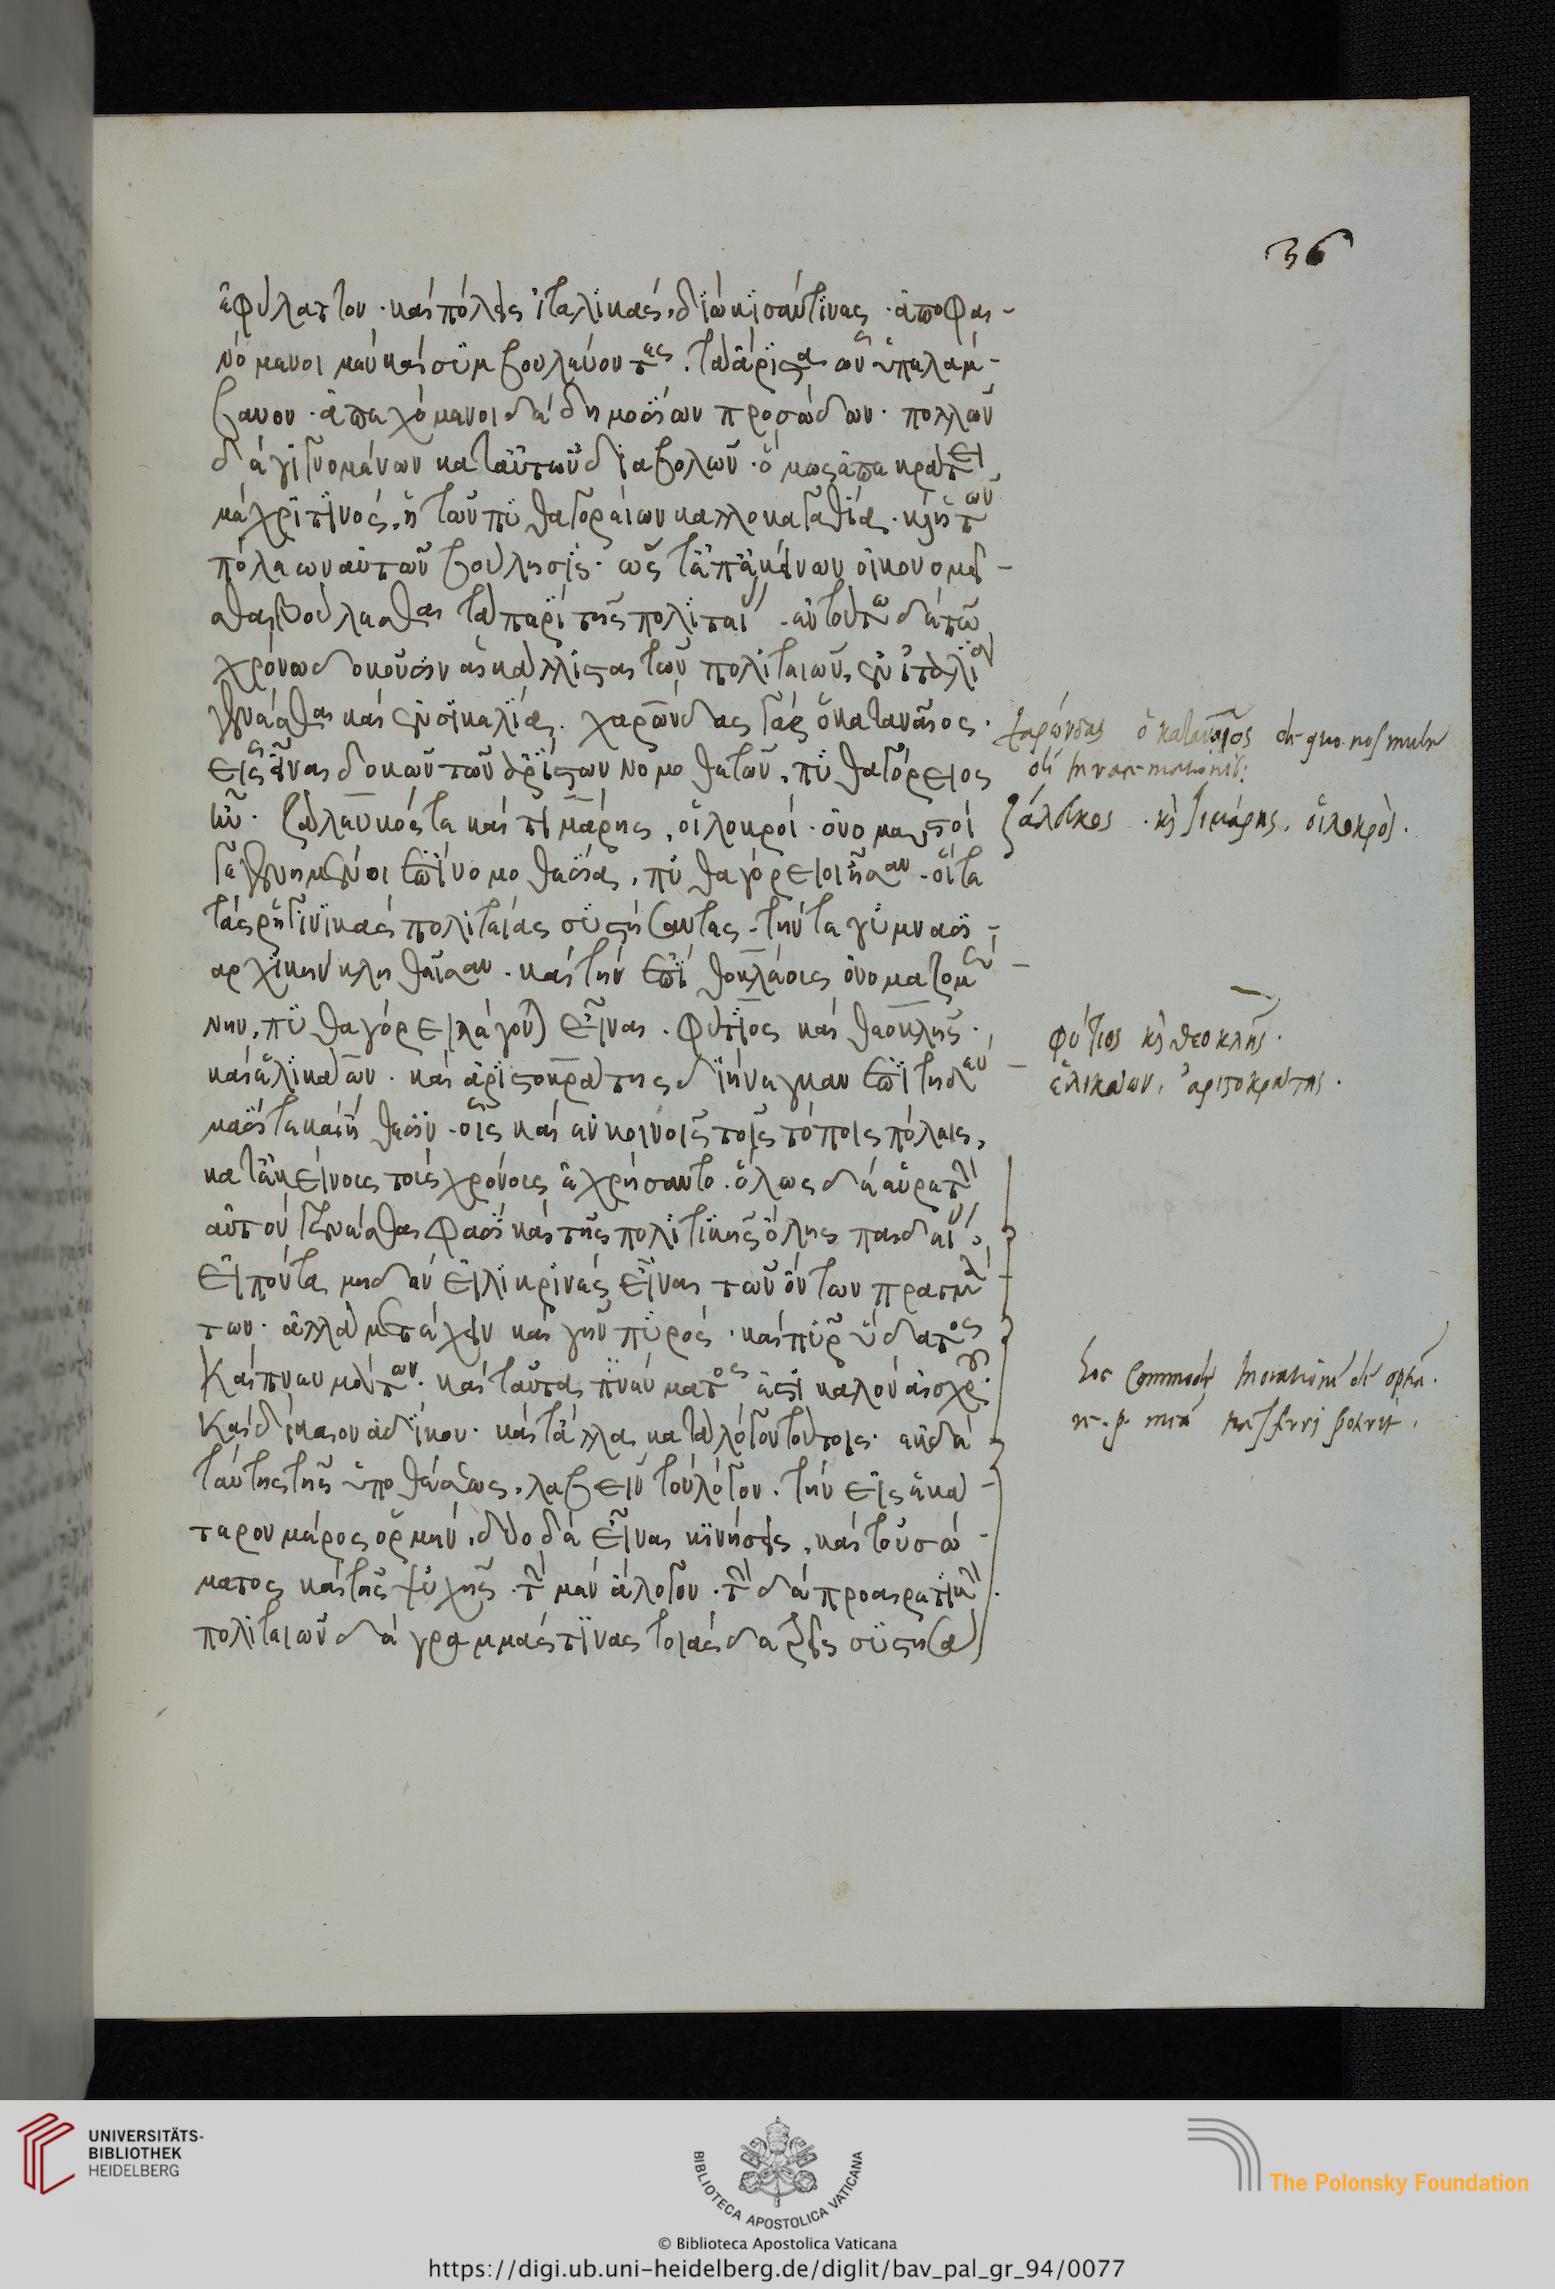 36
ἐφύλαττον · καὶ πόλεις ἰταλικὰς, διώκησάν τινας · ἀποφαι-
νόμενοι μὲν καὶ συμβουλεύοντες · τὰ ἄριστα ὧν ὑπελάμ-
βανον · ἀπεχόμενοι δὲ δημοσίων προσόδων · πολλῶν
δὲ γιγνομένων κατ' αὐτῶν διαβολῶν · ὅμως ἐπεκράτει
μέχρι τινὸς, ἡ τῶν πυθαγορείων καλλοκαγαθία · κ ἡ τῶν
πόλεων αὐτῶν βούλησις · ὡς τὲ ὑπ' ἐκείνων οἰκονομεῖ-
σθαι βούλεσθαι τὰ περὶ τῆς πολιτείας · ἐν τούτω δὲ τῶ
χρόνω δοκοῦσιν αἱ κάλλισται τῶν πολιτειῶν, ἐν ἰταλία
γενέσθαι καὶ ἐν σικελία · χαρώνδας γὰρ ὁ καταναῖος ·
εἷς εἶναι δοκῶν τῶν ἀρίστων νομοθετῶν, πυθαγόρειος
ἦν · ζάλευκός τε καὶ τιμάρης, οἱ λοκροὶ · ὀνομαστοὶ
γεγενημένοι ἐπὶ νομοθεσία, πυθαγόρειοι ἦσαν · οἵ τε
τὰς ῥηγινικὰς πολιτείας συστήσαντες · τήν τε γυμνασι-
αρχικὴν κληθεῖσαν · καὶ τὴν ἐπὶ θοκλέους ὀνομαζομέ-
νην, πυθαγόρει λέγον εἶναι · φύτιος καὶ θεοκλῆς ·
καὶ ἑλικάων · καὶ ἀριστοκράτης διήνεγκαν ἐπιτηδεύ-
μασί τε καὶ ἤθεσιν · οἷς καὶ ἐν κοίνοις τοῖς τόποις πόλεις,
κατ' ἐκείνους τοὺς χρόνους ἐχρήσαντο · ὅλως δὲ εὑρετὴν
αὐτὸν γενέσθαι φασὶ καὶ τῆς πολιτικῆς ὅλης παιδείας,
εἰπόντα μηδὲν εἰλικρινὲς εἶναι τῶν ὄντων πραγμά-
των · ἀλλὰ μετέχειν καὶ γῆν πυρὸς · καὶ πῦρ ὕδατος
καὶ πνευμάτων · καὶ ταῦτας πνεύματος ἔτι καλὸν αἰσχροῦ ·
καὶ δίκαιον ἀδίκου · καὶ τἆλλα κατὰ λόγον τούτοις · ἐκ δὲ
ταύτης τῆς ὑποθέσεως, λαβεῖν τὸν λόγον · τὴν εἰς ἑκά-
τερον μέρος ὁρμήν · δύο δὲ εἶναι κινήσεις, καὶ τοῦ σώ-
ματος καὶ τῆς ψυχῆς · τὴν μὲν ἄλογον · τὴν δὲ προαιρετικήν ·
πολιτειῶν δὲ γραμμάς τινας τοιάσδε τρεῖς συστησα
χαρώνδας ὁ καταναῖος de quo nos
ζάλευκος · κ τιμάρης · οἱ λοκροὶ ·
φύτιος κ θεοκλῆς ·
ἑλικάων, ἀριστοκράτης ·
UNIVERSITÄTS-
BIBLIOTHEK
HEIDELBERG
BIBLIOTECA APOSTOLICA VATICANA
© Biblioteca Apostolica Vaticana
https://digi.ub.uni-heidelberg.de/diglit/bav_pal_gr_94/0077
The Polonsky Foundation